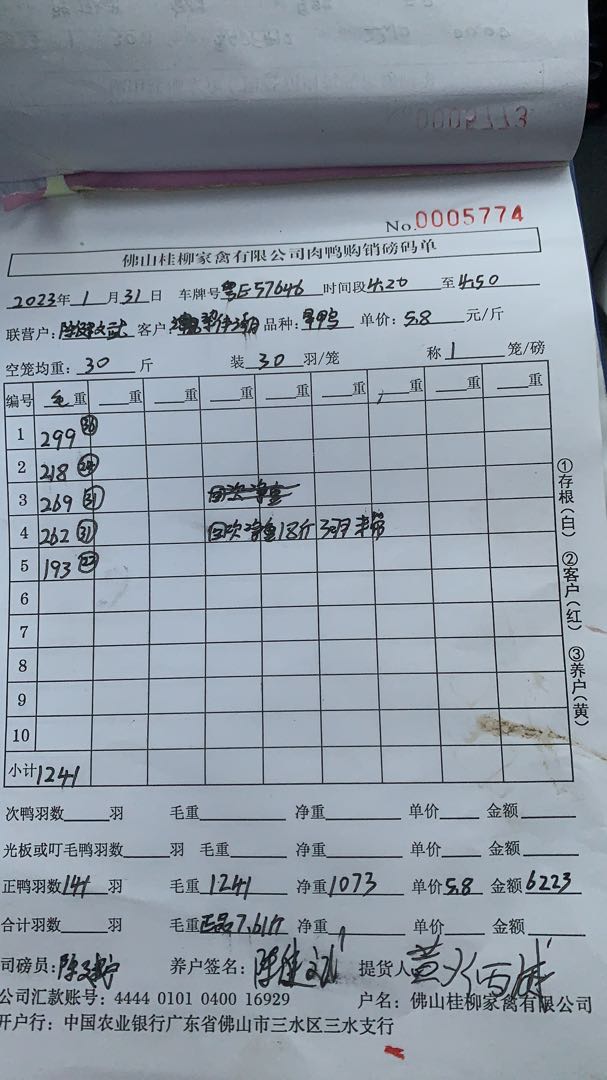 No.0005774
佛山桂柳家禽有限公司肉鸭购销磅码单
2023年 1 月 31 日 车牌号 粤E57646 时间段 4:20 至 4:50
联营户: 客户: 品种: 单价: 5.8 元/斤
空笼均重: 30 斤 装 30 羽/笼 称 1 笼/磅
编号 毛重 重 重 重 重 重 重 重 重
1 299
2 218
3 269 31
4 262 31 回次净重18斤 3羽
5 193 23
6
7
8
9
10
小计 1241
①存根(白) ②客户(红) ③养户(黄)
次鸭羽数 羽 毛重 净重 单价 金额
光板或叮毛鸭羽数 羽 毛重 净重 单价 金额
正鸭羽数 141 羽 毛重 1241 净重 1073 单价 5.8 金额 6223
合计羽数 羽 毛重 正品7.61斤 净重 单价 金额
司磅员: 养户签名: 提货人
公司汇款账号: 4444 0101 0400 16929 户名: 佛山桂柳家禽有限公司
开户行: 中国农业银行广东省佛山市三水区三水支行